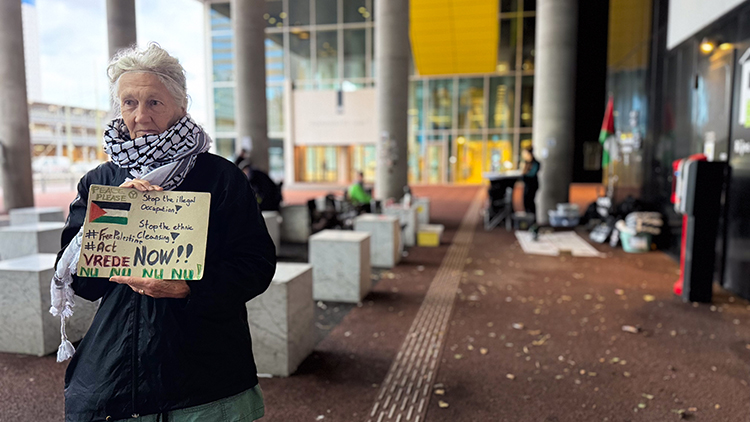 PEACE
PLEASE
Stop the illegal
Occupation!
Stop the ethnic
#FreePalestine Cleansing!
#Act NOW!!
VREDE
NU NU NU NU NU